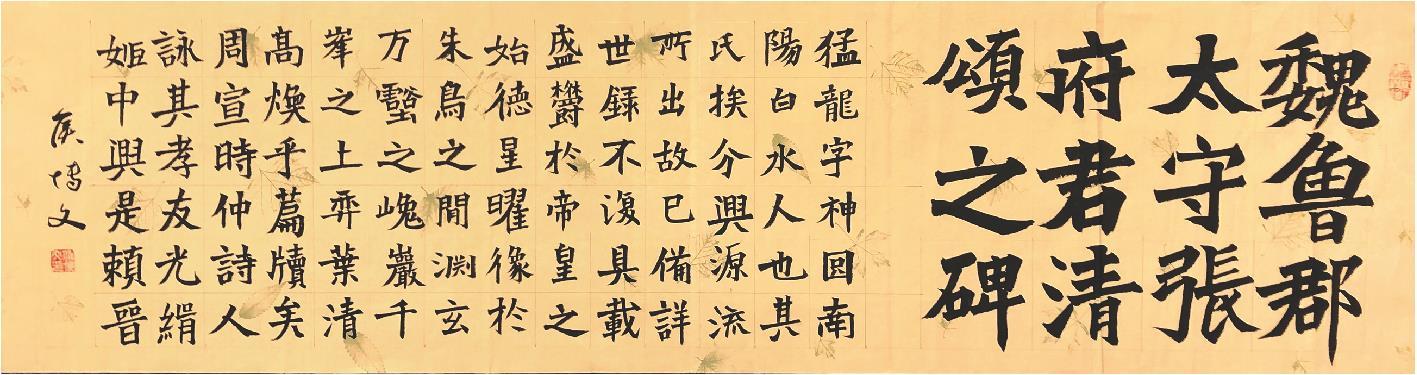 魏魯郡
太守張
府君清
頌之碑
猛龍字神囙南
陽白水人也其
氏挨分興源流
所出故已備詳
世録不復具載
盛欝於帝皇之
始德星曜像於
朱鳥之間渕玄
万壑之嵬巖千
峯之上弈葉清
高煥乎萹牘矣
周宣時仲詩人
詠其孝友光緝
姬中興是賴晉
侯博文